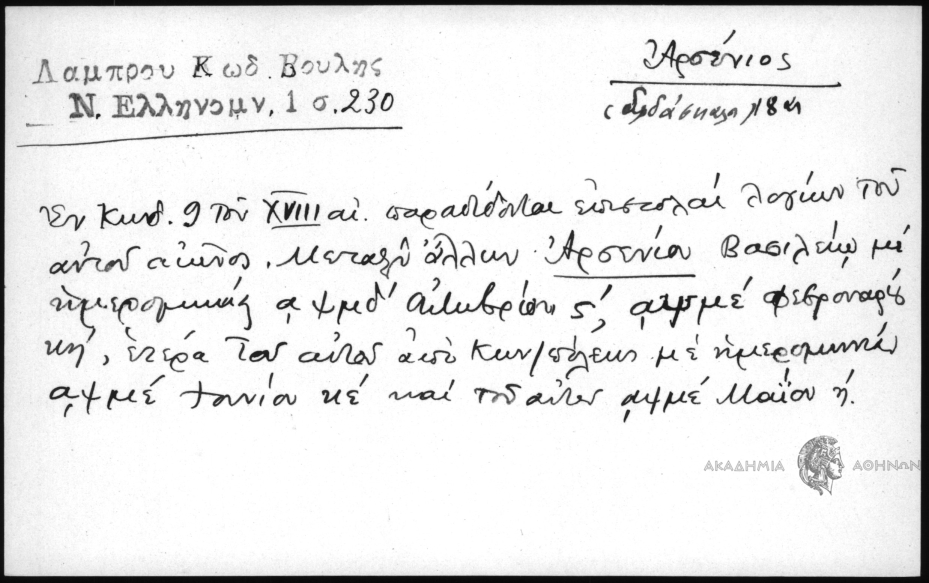 Λαμπρου Κωδ. Βουλης
Ν. Ελληνομν. 1 σ. 230
Ἀρσένιος
18 αἰ
Ἐν Κωδ. 9 τοῦ XVIII αἰ. παραδίδονται ἐπιστολαί λογίων τοῦ
αὐτοῦ αἰῶνος. Μεταξύ ἄλλων Ἀρσενίου Βασιλείῳ μέ
ἡμερομηνίας αψμδ΄ ς΄, αψμέ Φεβρουαρίου
κή, ἑτέρα τοῦ αὐτοῦ ἀπό Κων/πόλεως μέ ἡμερομηνίαν
αψμέ Ἰουνίου κέ καί τοῦ αὐτοῦ αψμέ Μαΐου ή.
ΑΚΑΔΗΜΙΑ ΑΘΗΝΩΝ